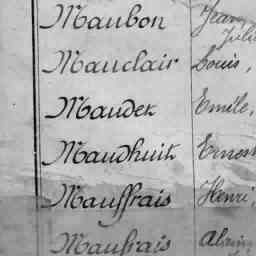 Maubon Jean
Juli
Mauclair Louis,
Mauder Emile,
Maudhuit Ernest
Mauffrais Henri,
Maufrais Alain,